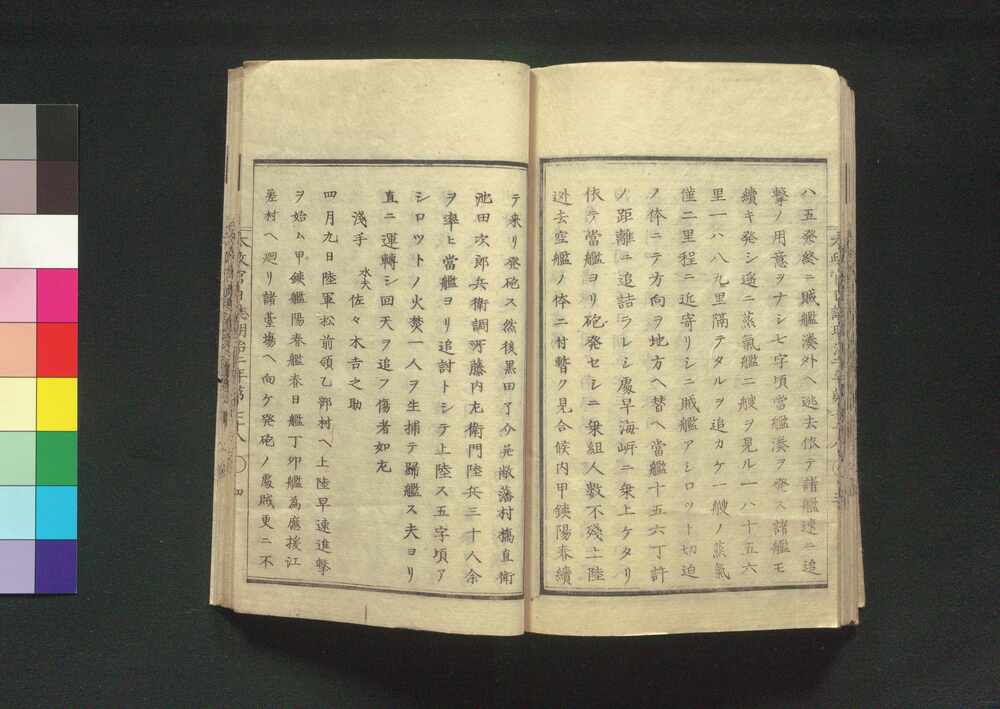 ハ五発終ニ賊艦湊外ヘ逃去依テ諸艦速ニ追
撃ノ用意ヲナシ七字頃當艦湊ヲ発ス諸艦モ
續キ発シ遥ニ蒸氣艦二艘ヲ見ル一ハ十五六
里一ハ八九里隔テタルヲ追カケ一艘ノ蒸氣
僅二里程ニ近寄リシニ賊艦アシロット切迫
ノ体ニテ方向ヲ地方ヘ替ヘ當艦十五六丁許
ノ距離ニ追詰ラレシ處早海岍ニ乗上ケタリ
依テ當艦ヨリ砲発セシニ乗組人數不殘上陸
逃去空艦ノ体ニ付暫ク見合候内甲鐵陽春續
テ来リ発砲ス然後黒田了介兵敝藩村橋直衛
池田次郎兵衛調所藤内左衛門陸兵三十人余
ヲ率ヒ當艦ヨリ追討トシテ上陸ス五字頃ア
シロットノ火焚一人ヲ生捕テ歸艦ス夫ヨリ
直ニ運轉シ回天ヲ追フ傷者如左
淺手 水夫 佐々木吉之助
四月九日陸軍松前領乙部村ヘ上陸早速進撃
ヲ始ム甲鐵艦陽春艦春日艦丁卯艦為應援江
差村ヘ廻リ諸臺場ヘ向ケ発砲ノ處賊更ニ不
太政官日誌明治二年第三十八 〇 四